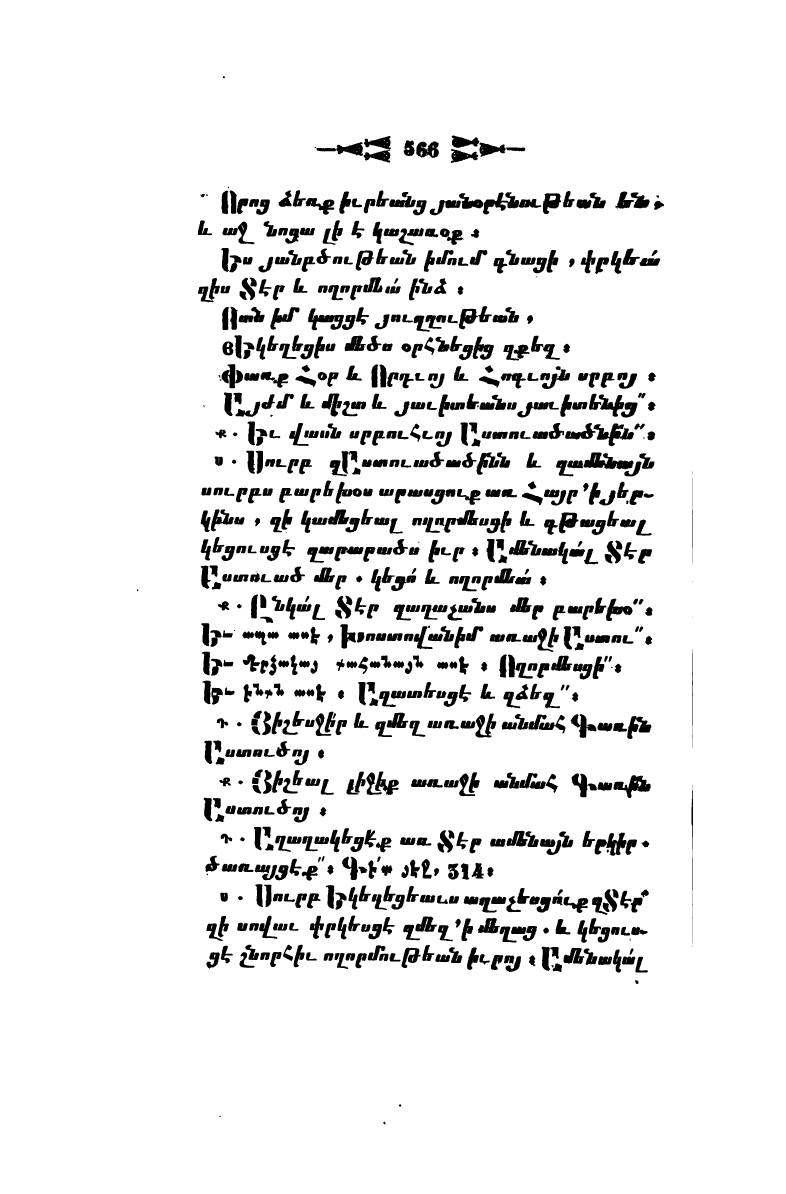 566
Որոց ձեռք իւրեանց յանօրէնութեան են,
և աջ նոցա լի է կաշառօք ։
Ես յանբծութեան իմում գնացի, փրկեա՛
զիս Տէր և ողորմեա՛ ինձ ։
Ոտն իմ կացցէ յուղղութեան,
յԵկեղեցիս մեծս օրհնեցից զքեզ ։
Փառք Հօր և Որդւոյ և Հոգւոյն սրբոյ ։
Այժմ և միշտ և յաւիտեանս յաւիտենից՞։
Ք. Եւ վասն սրբուհւոյ Աստուածածնին՞։
Ս. Սուրբ զԱստուածածինն և զամենայն
սուրբս բարեխօս արասցուք առ Հայր ՚ի յեր֊
կինս, զի կամեցեալ ողորմեսցի և գթացեալ
կեցուսցէ զարարածս իւր ։ Ամենակալ Տէր
Աստուած մեր. կեցո՛ և ողորմեա՛ ։
Ք. Ընկա՛լ Տէր զաղաչանս մեր բարեխօ՞։
Եւ ապա ասէ, խոստովանիմ առաջի Աստու՞։
Եւ մերձակայ քահանայն ասէ ։ Ողորմեսցի՞։
Եւ ինքն ասէ ։ Ազատեսցէ և զձեզ՞։
Դ. Յիշեսջի՛ր և զմեզ առաջի անմահ Գառին
Աստուծոյ ։
Ք. Յիշեալ լիջիք առաջի անմահ Գառին
Աստուծոյ ։
Դ. Աղաղակեցէ՛ք առ Տէր ամենայն երկիր.
ծառայցէք՞։ 314։
Ս. Սուրբ Եկեղեցեաւս աղաչեսցո՛ւք զՏէր՞
զի սովաւ փրկեսցէ զմեզ ՚ի մեղաց. և կեցուս֊
ցէ շնորհիւ ողորմութեան իւրոյ ։ Ամենակա՛լ